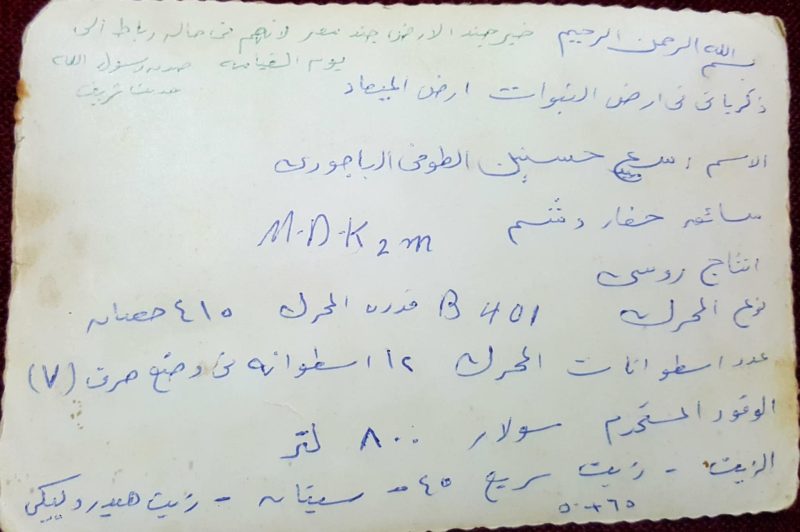 بسم الله الرحمن الرحيم خير جند الارض جند مصر لانهم فى حاله رباط الى
يوم القيامه صدق رسول الله
حديث شريف
ذكرياتى فى ارض النبوات ارض الميعاد
الاسم : ربيع حسنين الطوخى الباجورى
سائق حفار دشم
M-D-K 2 m
انتاج روسى
نوع المحرك B 401 قدره المحرك ٤١٥ حصان
عدد اسطوانات المحرك ١٢ اسطوانه فى وضع حرف (V)
الوقود المستخدم سولار ٨٠٠ لتر
الزيت - زيت سريع ٤٥ - سيتان - زيت هيدروليكى